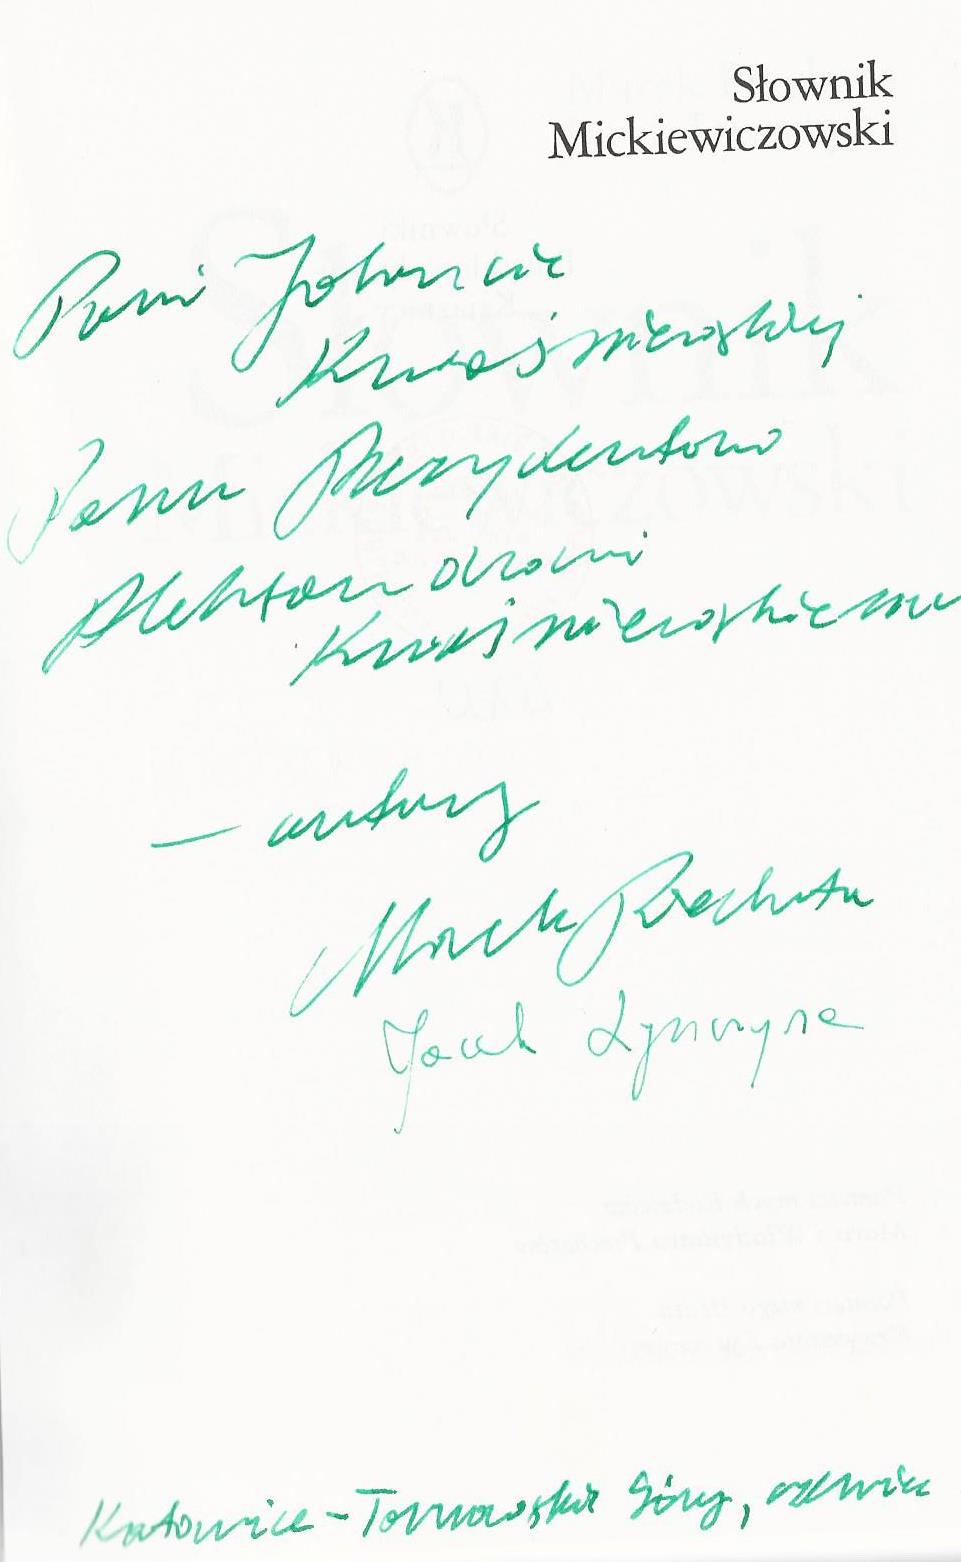 Słownik
Mickiewiczowski
Pani Jolancie
Kwaśniewskiej
Panu Prezydentowi
Aleksandrowi
Kwaśniewskiemu
— autorzy
Marek Piechota
Jacek Lyszczyna
Katowice – Tarnowskie Góry, czerwiec